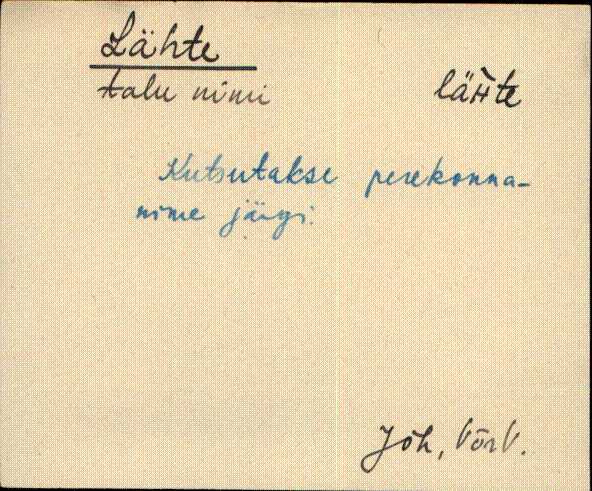 Lähte
talu nimi läʜ̀te
Kutsutakse perekonna-
nime järgi.
Jõh, VõrV.